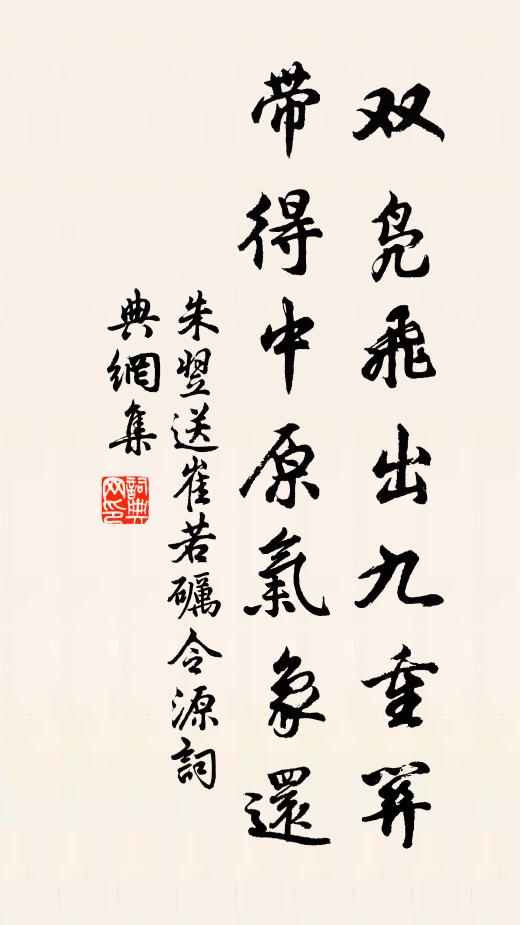 双凫飛出九重關
帶得中原氣象還
朱翌送崔若礪令源詞
典網集
詞典
网印